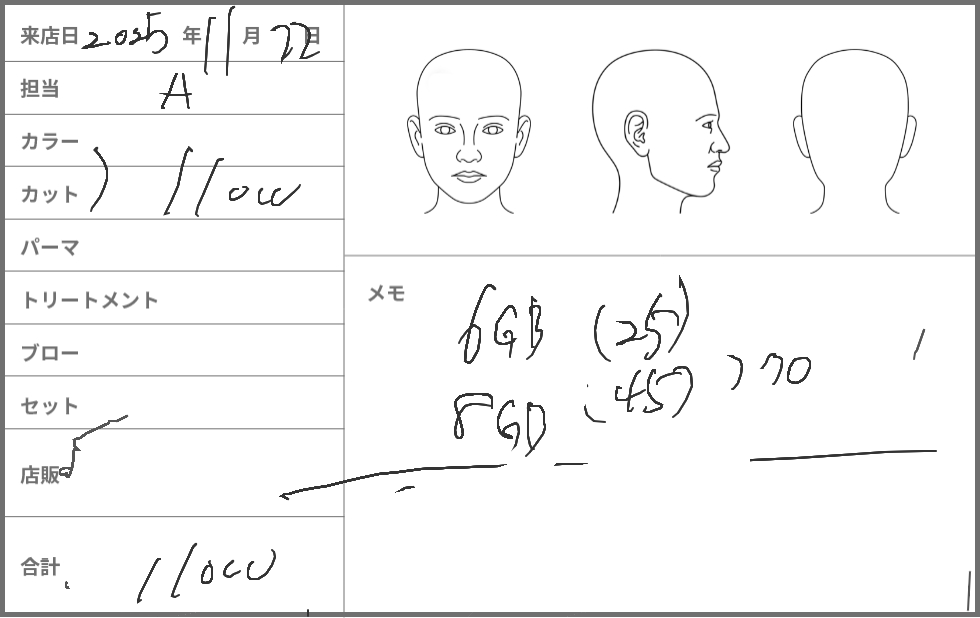 来店日 2025 年 11 月 22 日
担当 A
カラー
カット ) 11000
パーマ
トリートメント
ブロー
セット
店販
合計 11000
メモ
6GB (25)
8GD (45) ) 70